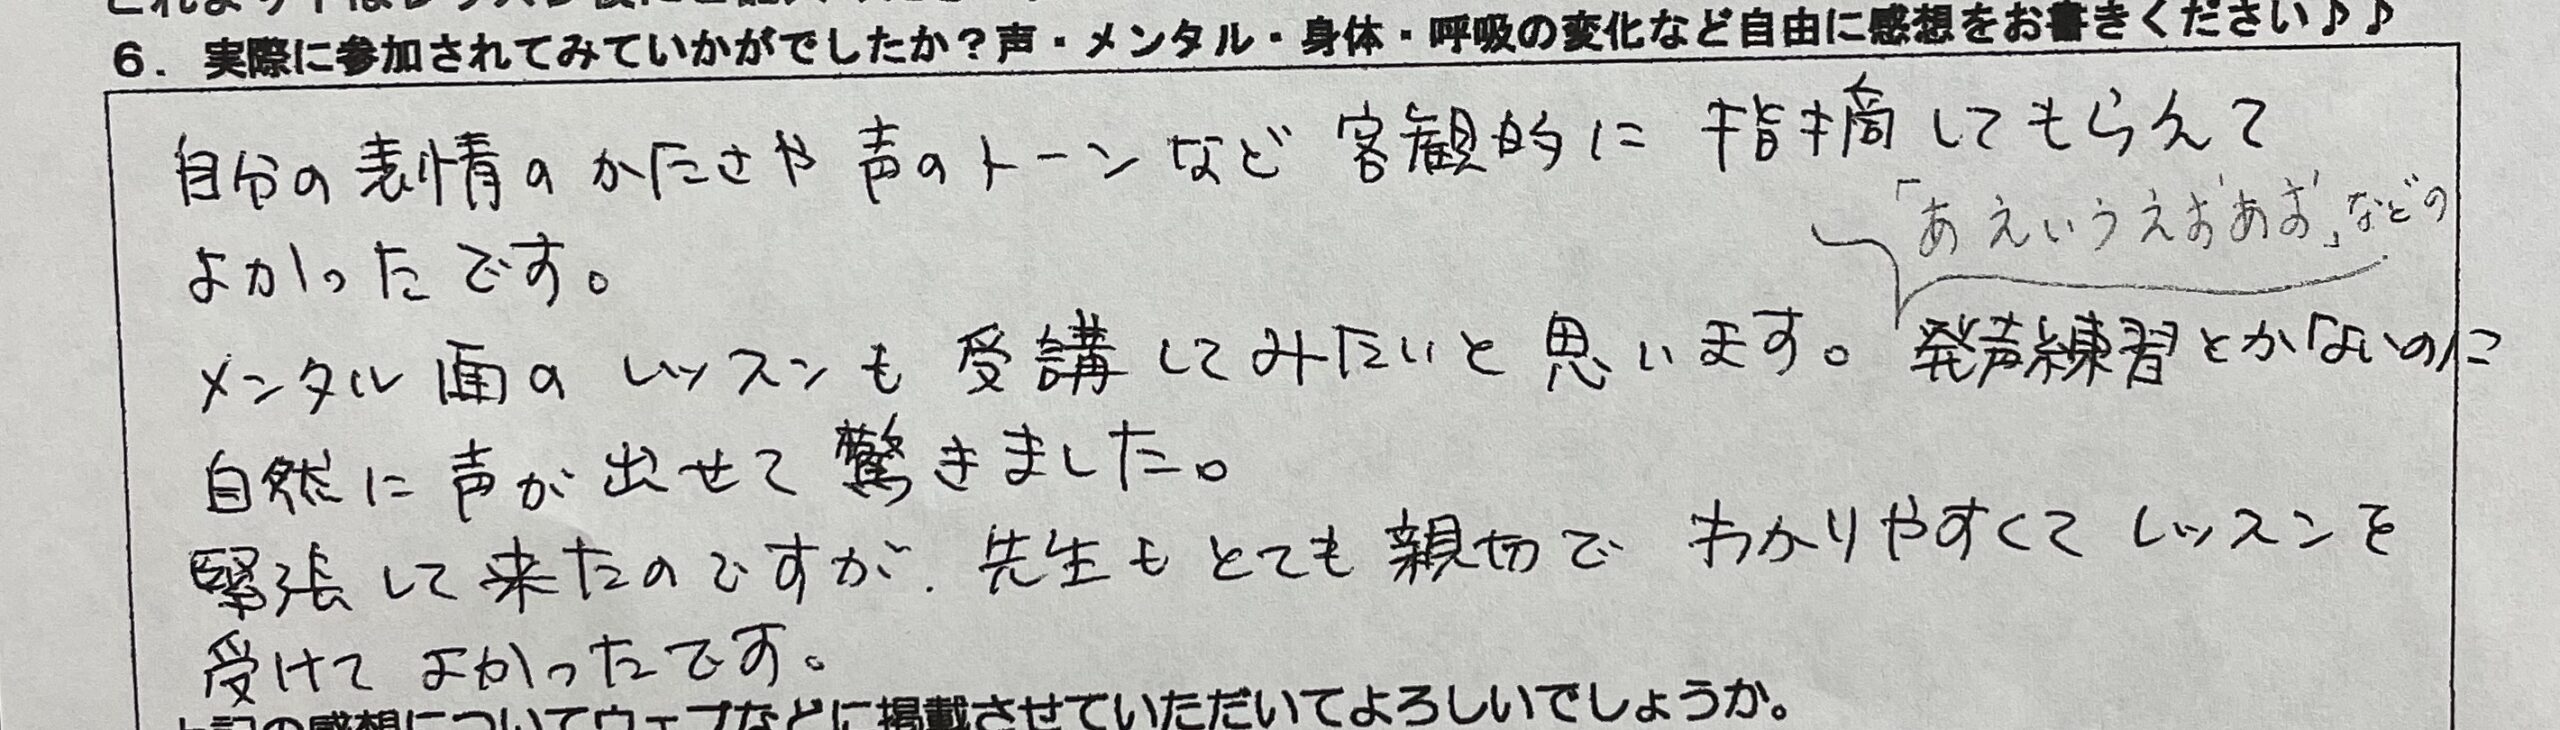 6. 実際に参加されてみていかがでしたか?声・メンタル・身体・呼吸の変化など自由に感想をお書きください♪♪
自分の表情のかたさや声のトーンなど客観的に指摘してもらえて
よかったです。
「あえいうえおあお」などの
メンタル面のレッスンも受講してみたいと思います。発声練習とかないのに
自然に声が出せて驚きました。
緊張して来たのですが、先生もとても親切でわかりやすくてレッスンを
受けてよかったです。
上記の感想についてウェブなどに掲載させていただいてよろしいでしょうか。